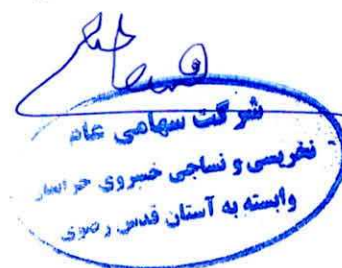 شرکت سهامی عام
نخریسی و نساجی خسروی خراسان
وابسته به آستان قدس رضوی